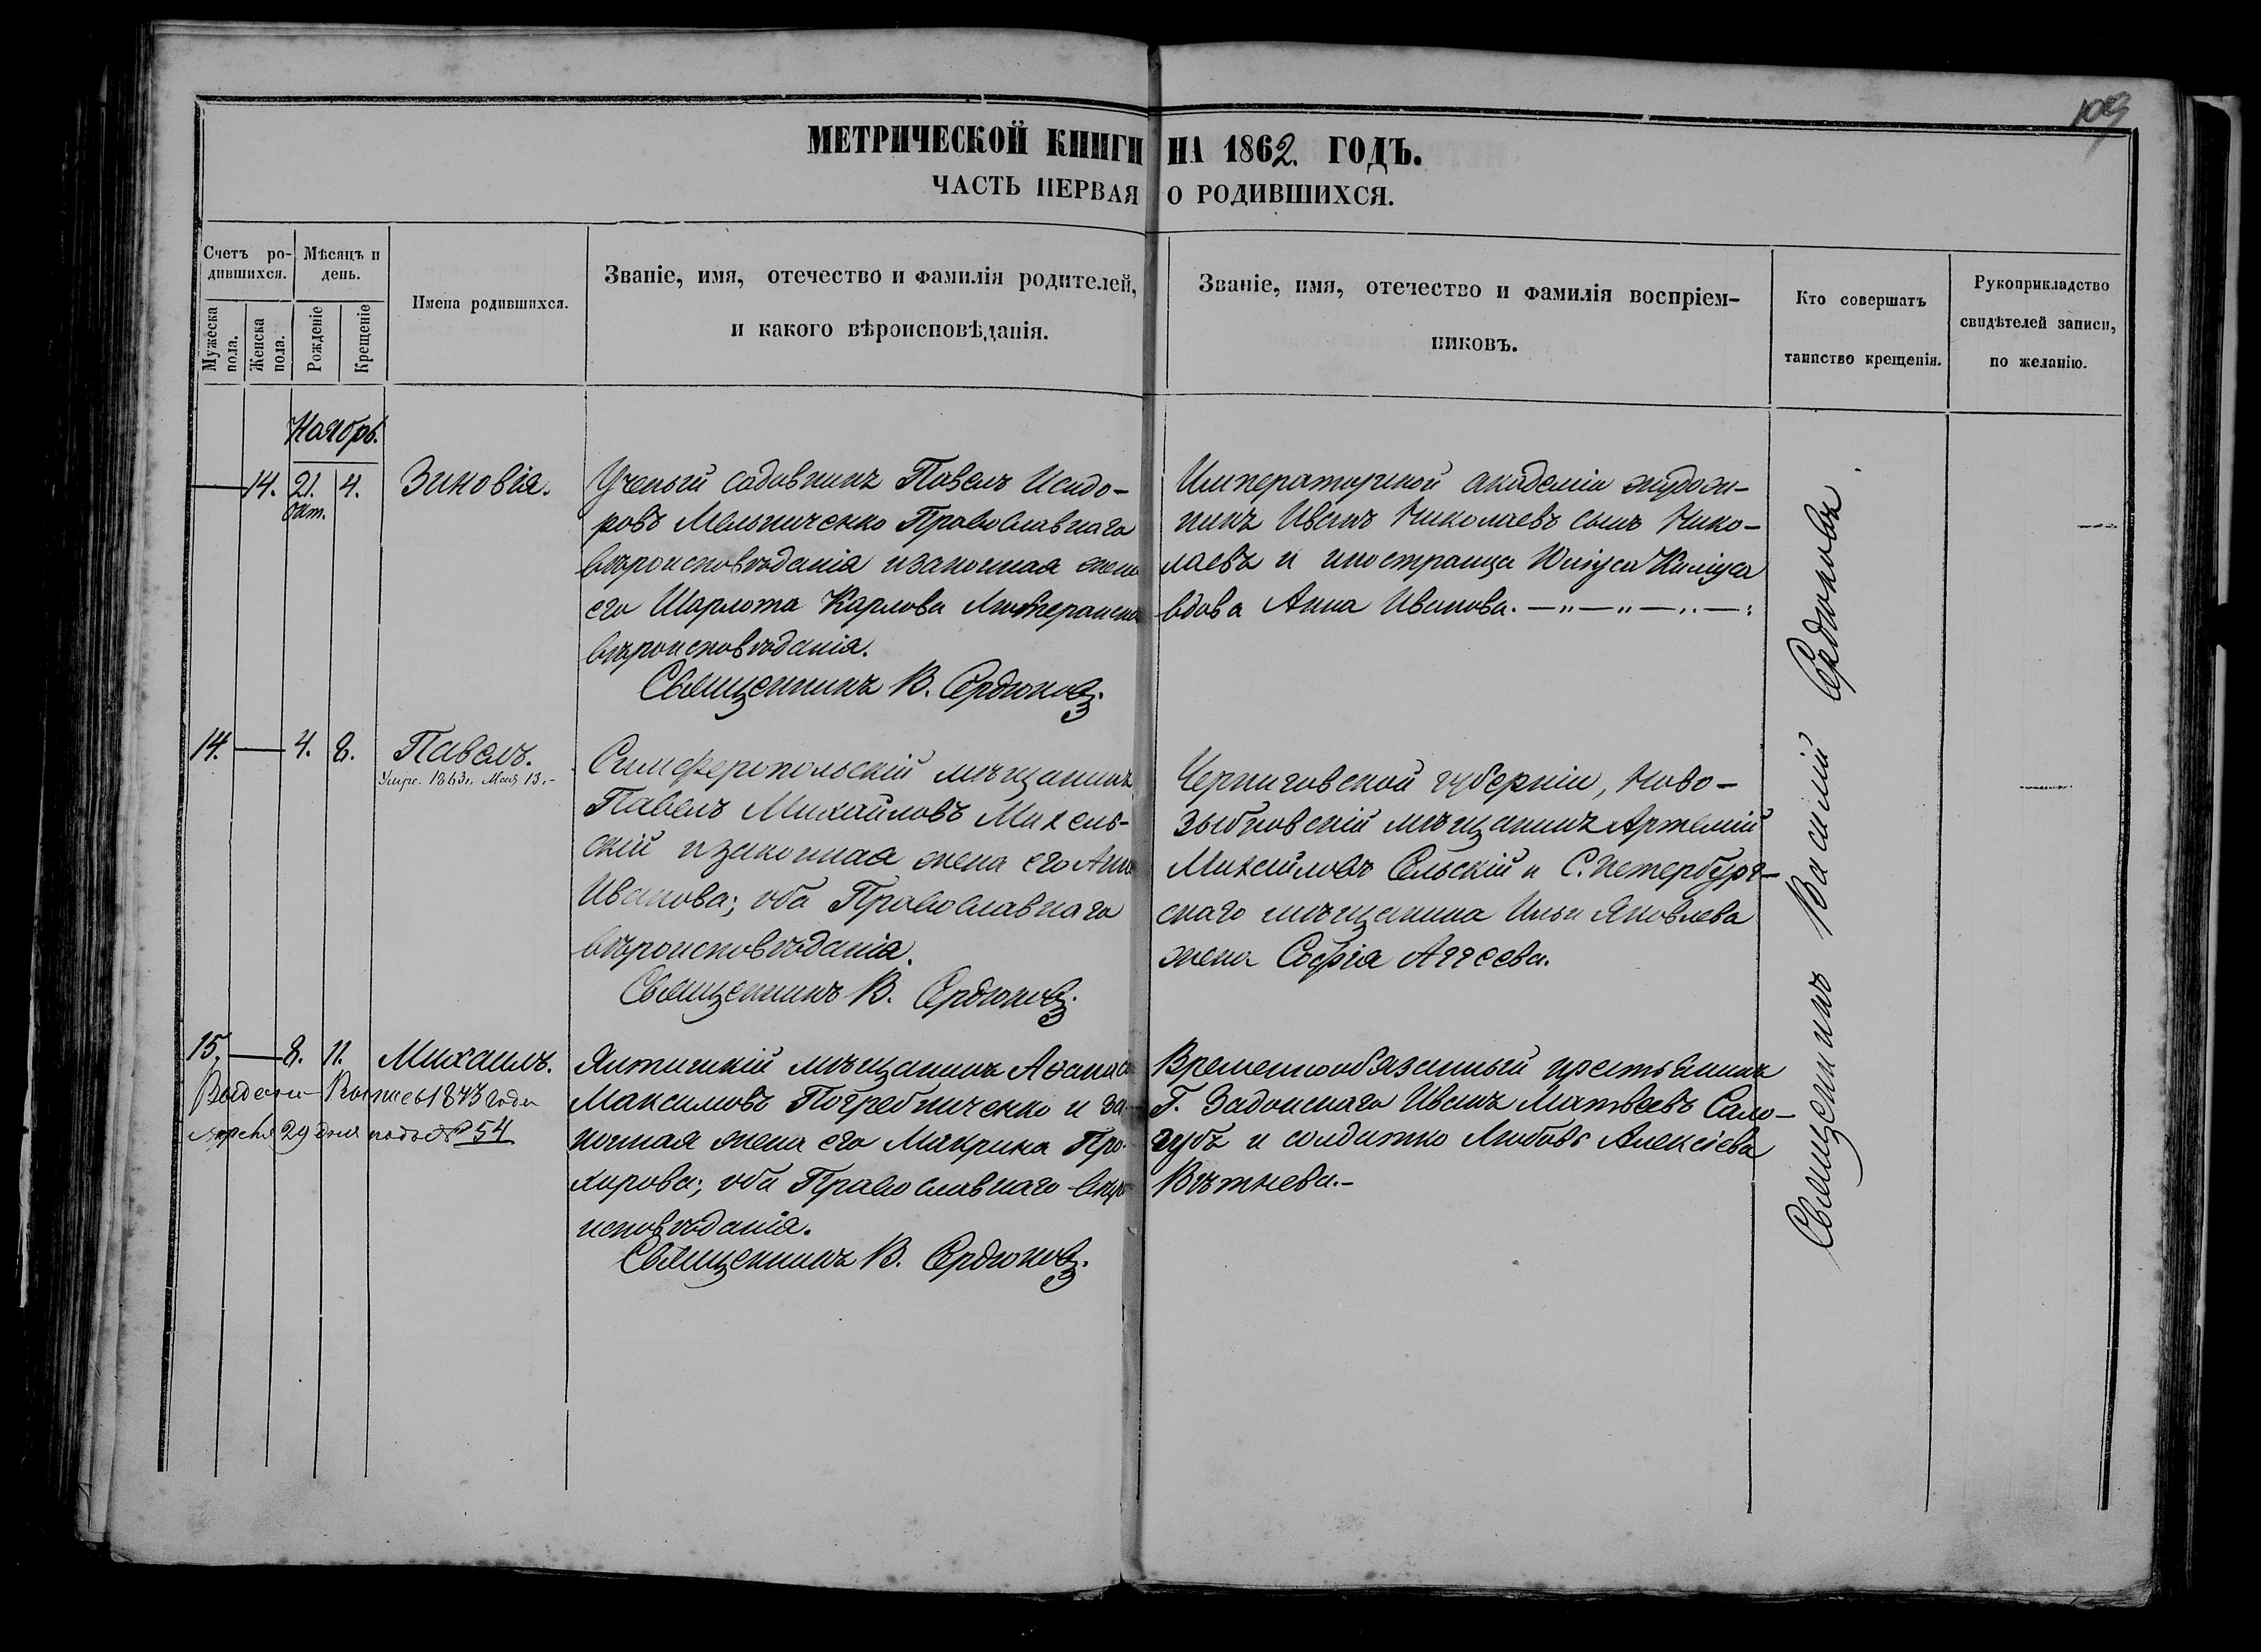 109
МЕТРИЧЕСКОЙ КНИГИ НА 1862. ГОДЪ.
ЧАСТЬ ПЕРВАЯ О РОДИВШИХСЯ.
Счетъ ро-
дившихся.
Мѣсяцъ и
день.
Мужеска
пола.
Женска
пола.
Рожденіе
Крещеніе
Имена родившихся.
Званіе, имя, отечество и фамилія родителей,
и какого вѣроисповѣданія.
Званіе, имя, отечество и фамилія воспріем-
никовъ.
Кто совершатъ
таинство крещенія.
Рукоприкладство
свидѣтелей записи,
по желанію.
Ноябрь.
14. 21. 4. Зиновія.
Окт.
Ученый садовникъ Павелъ Исидо-
ровъ Мельниченко Православнаго
вѣроисповѣданія и законная жена
его Шарлота Карлова Лютеранска
вѣроисповѣданія.
Священникъ В. Сердюковъ.
Императорской академіи художн-
никъ Иванъ Николаевъ сынъ Нико-
лаевъ и иностранца
вдова Анна Иванова.
14. 4. 8. Павелъ.
Умре. 1863г. Мая 13.-
Симферопольскій мѣщанинъ
Павелъ Михайловъ Михель-
скій и законная жена его Анна
Иванова; оба Православнаго
вѣроисповѣданія.
Священникъ В. Сердюковъ.
Черниговской губерніи, Ново-
зыбковскій мѣщанинъ Артемій
Михайловъ Сельскій и С. Петербург-
скаго мѣщанина Ильи Яковлева
жена Софія Аггеева.
15. 8. 11. Михаилъ.
Выдана 1873 года
Апреля 29 дня подъ № 54
Ялтинскій мѣщанинъ Аѳанасій
Максимовъ Погребниченко и за-
конная жена его Макрина Про-
хирова; оба Православнаго вѣро-
исповѣданія.
Священникъ В. Сердюковъ.
Временнообязанный крестьянинъ
Г. Задонскаго Иванъ Матвеевъ Сало-
губъ и солдатка Любовь Алексіева
Вѣтнева.-
Священникъ Василій Сердюковъ